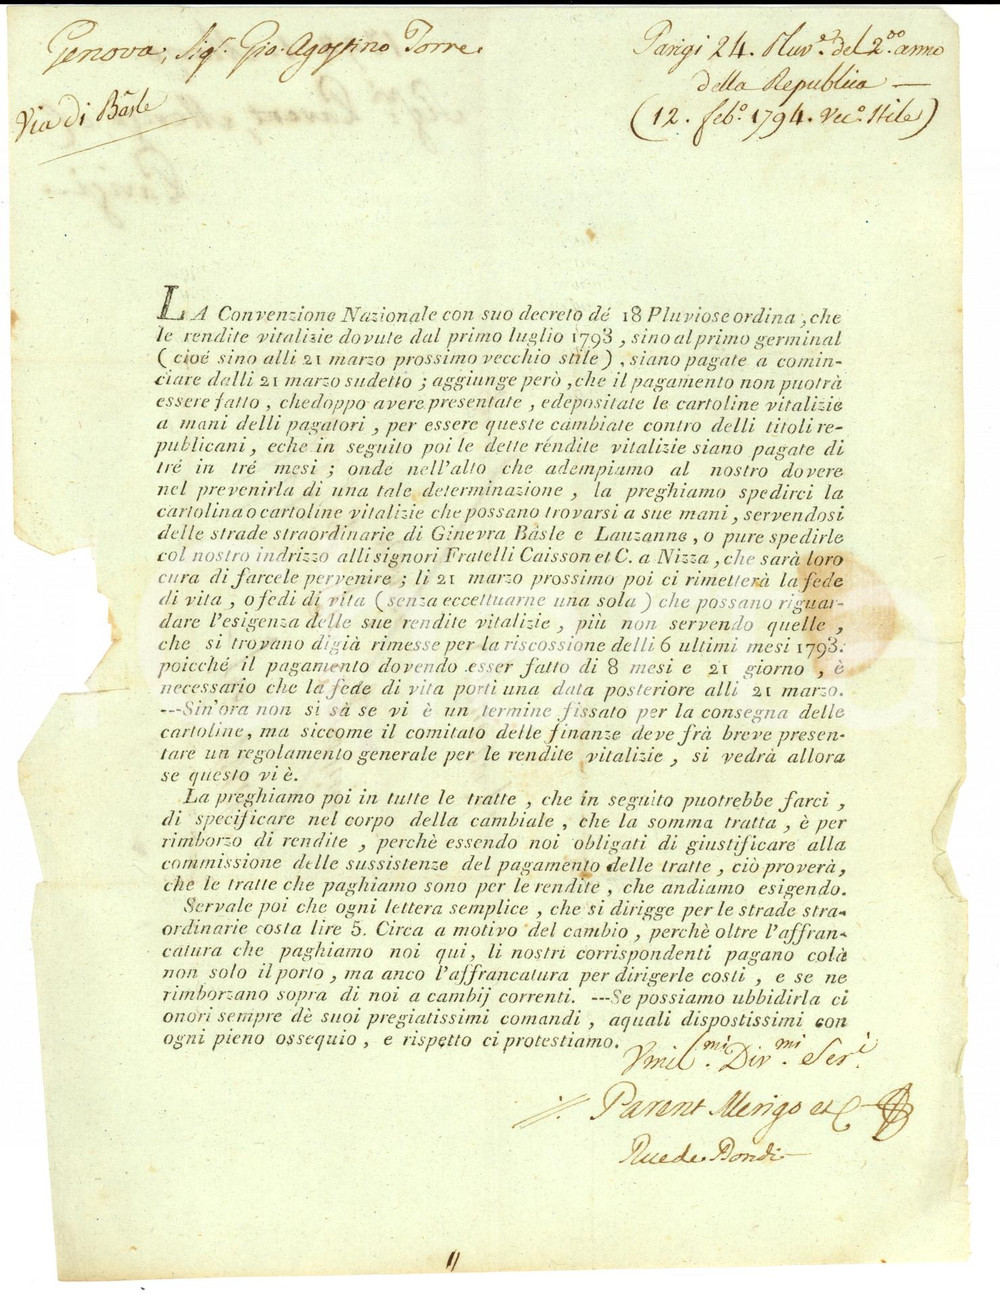 Genova, Sigr. Gio. Agostino Torre.
Via di Bâsle
Parigi 24. Pluve. del 2.do anno
della Republica —
(12. febo. 1794. veco. stile)
LA Convenzione Nazionale con suo decreto dé 18 Pluviose ordina, che
le rendite vitalizie dovute dal primo luglio 1793, sino al primo germinal
(cioé sino alli 21 marzo prossimo vecchio stile), siano pagate a comin-
ciare dalli 21 marzo sudetto; aggiunge però, che il pagamento non puotrà
essere fatto, chedoppo avere presentate, edepositate le cartoline vitalizie
a mani delli pagatori, per essere queste cambiate contro delli titoli re-
publicani, eche in seguito poi le dette réndite vitalizie siano pagate di
tré in tré mesi; onde nell'atto che adempiamo al nostro dovere
nel prevenirla di una tale determinazione, la preghiamo spedirci la
cartolina o cartoline vitalizie che possano trovarsi a sue mani, servendosi
delle strade straordinarie di Ginevra Bàsle e Lauzanne, o pure spedirle
col nostro indrizzo alli signori Fratelli Caisson et C. a Nizza, che sarà loro
cura di farcele pervenire; li 21 marzo prossimo poi ci rimetterà la fede
di vita, o fedi di vita (senza eccettuarne una sola) che possano riguar-
dare l'esigenza delle sue rendite vitalizie, più non servendo quelle,
che si trovano digià rimesse per la riscossione delli 6 ultimi mesi 1793.
poicché il pagamento dovendo esser fatto di 8 mesi e 21 giorno, è
necessario che la fede di vita porti una data posteriore alli 21 marzo.
---Sin'ora non si sà se vi è un termine fissato per la consegna delle
cartoline, ma siccome il comitato delle finanze deve frà breve presen-
tare un regolamento generale per le rendite vitalizie, si vedrà allora
se questo vi è.
La preghiamo poi in tutte le tratte, che in seguito puotrebbe farci,
di specificare nel corpo della cambiale, che la somma tratta, è per
rimborzo di rendite, perchè essendo noi obligati di giustificare alla
commissione delle sussistenze del pagamento delle tratte, ciò proverà,
che le tratte che paghiamo sono per le rendite, che andiamo esigendo.
Servale poi che ogni lettera semplice, che si dirigge per le strade stra-
ordinarie costa lire 5. Circa a motivo del cambio, perchè oltre l'affran-
catura che paghiamo noi qui, li nostri corrispondenti pagano colà
non solo il porto, ma anco l'affrancatura per dirigerle costi, e se ne
rimborzano sopra di noi a cambij correnti. ---Se possiamo ubbidirla ci
onori sempre dè suoi pregiatissimi comandi, aquali dispostissimi con
ogni pieno ossequio, e rispetto ci protestiamo.
Vmil.mi Div.mi Ser.i
Parent Merigo et C
Rue de Bondi